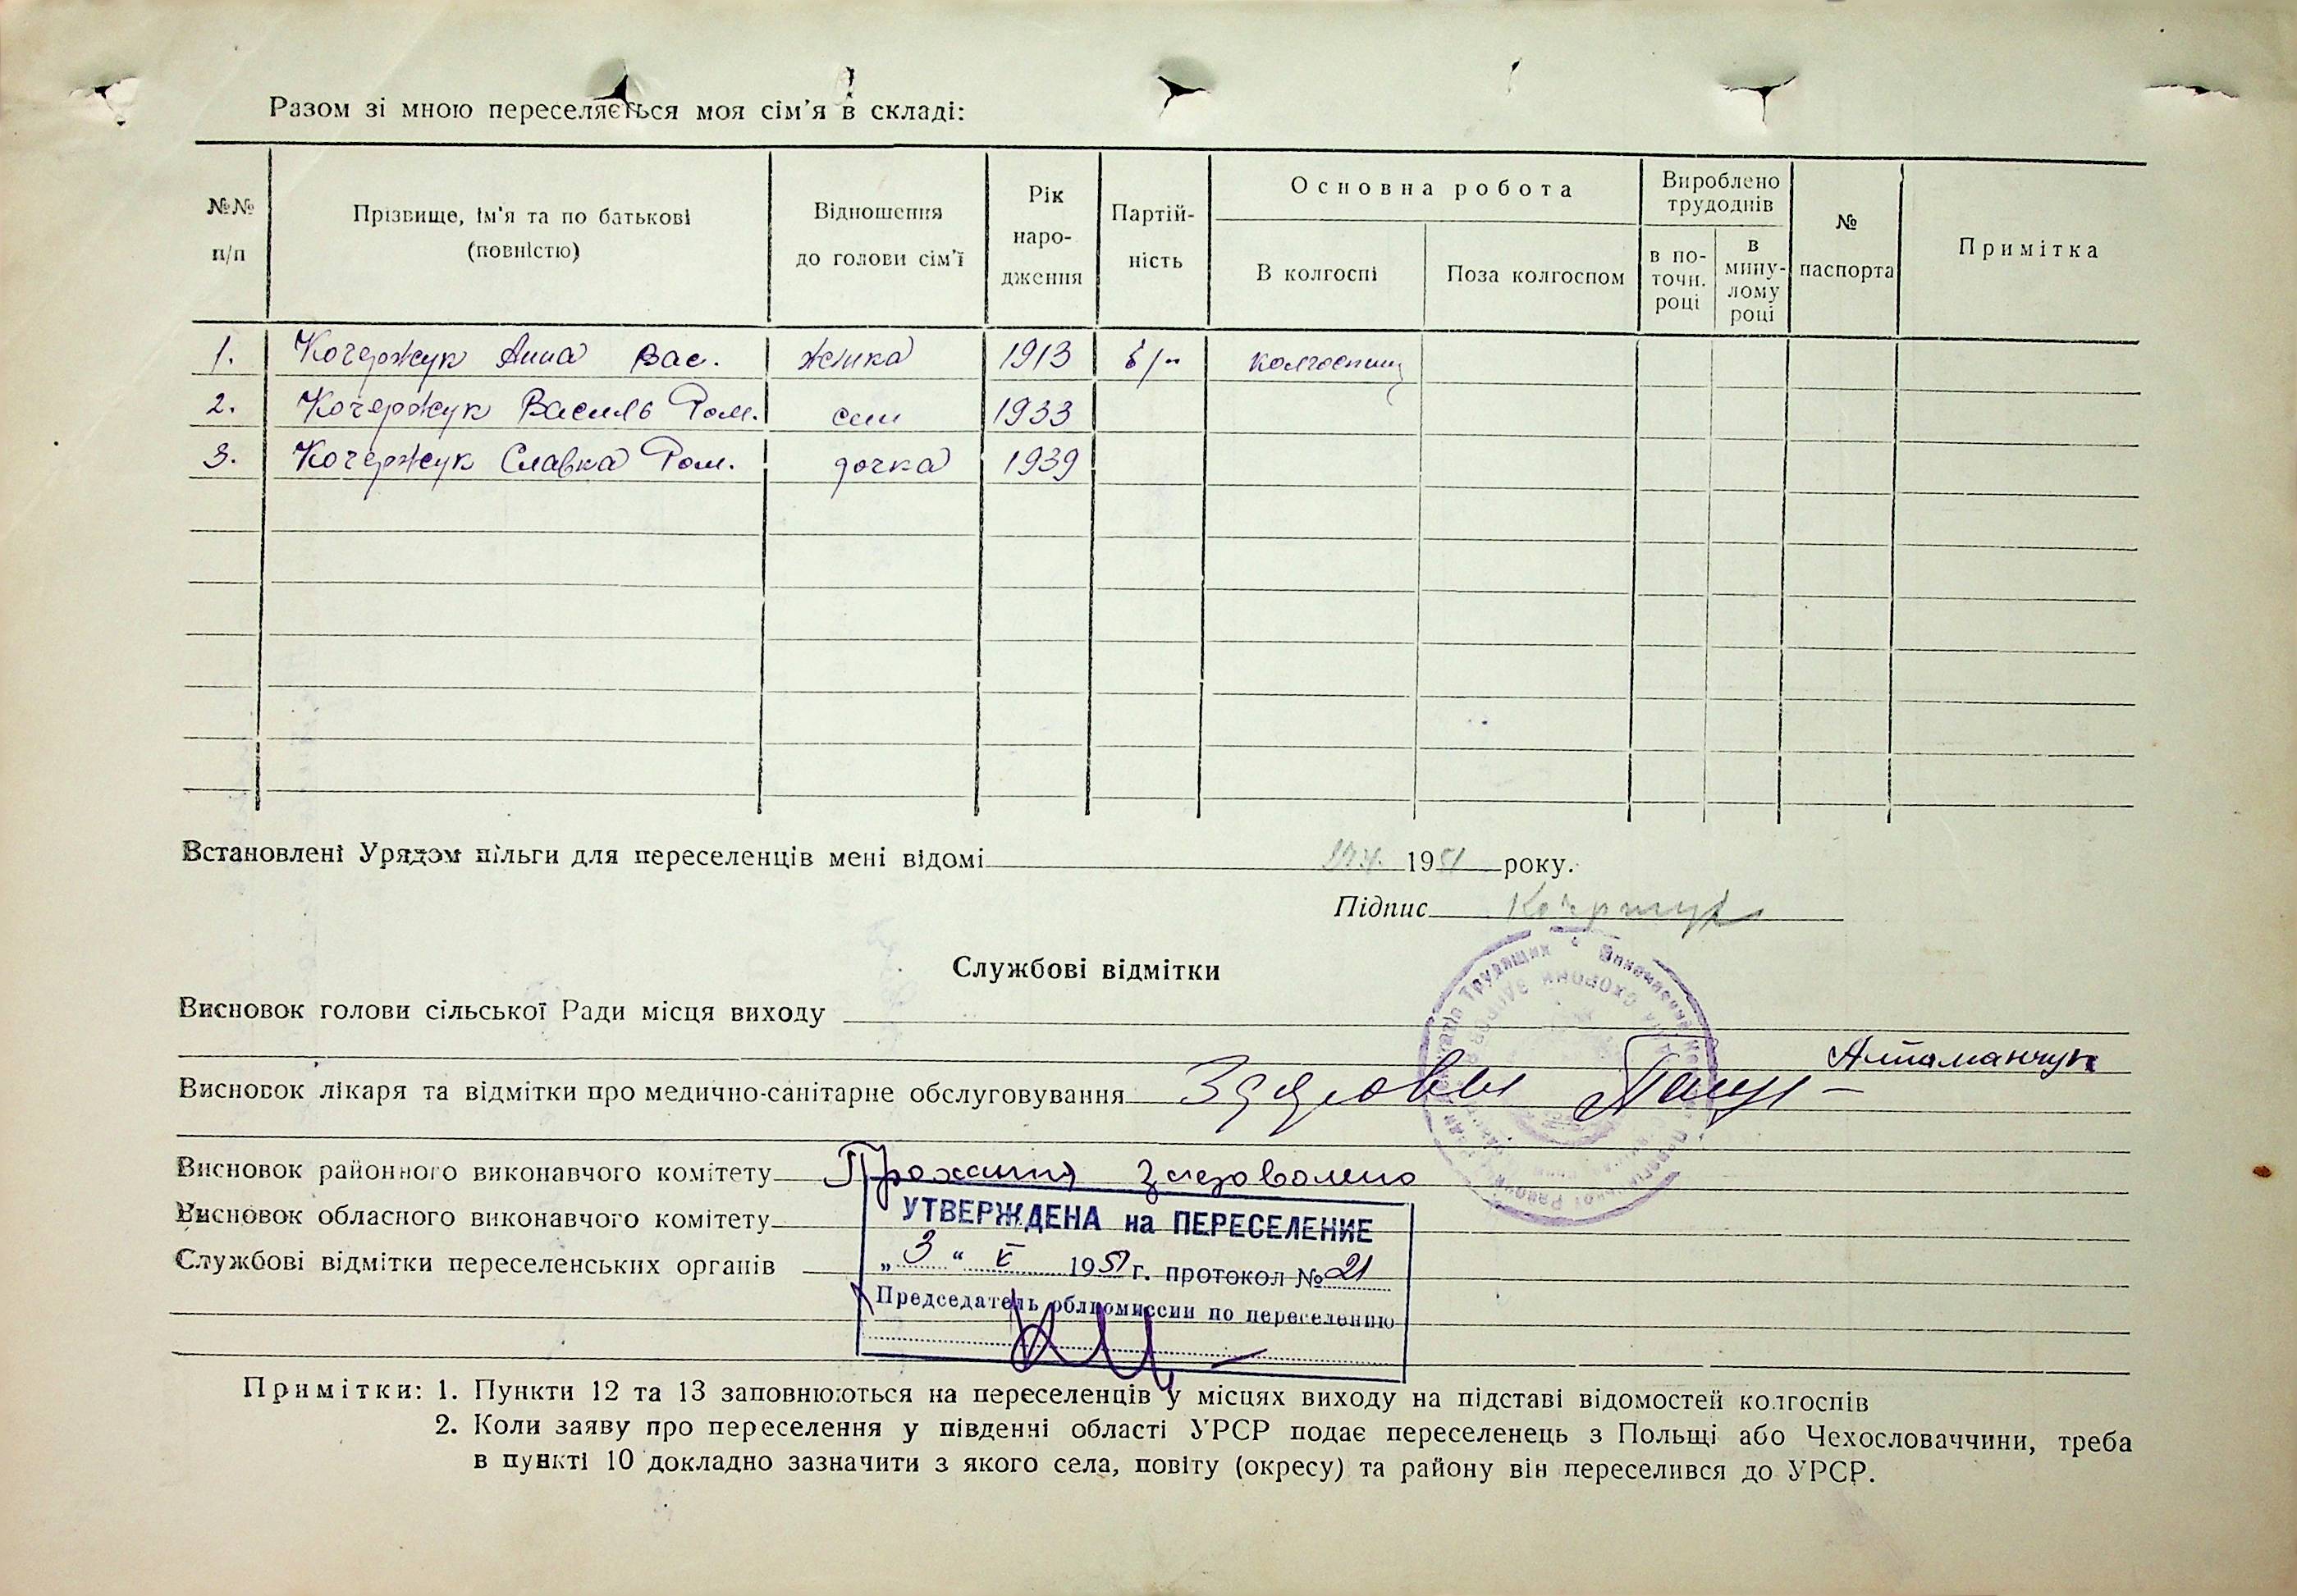 Разом зі мною переселяється моя сім'я в складі:
№№ п/п
Прізвище, ім'я та по батькові (повністю)
Відношення до голови сім'ї
Рік народження
Партійність
Основна робота
В колгоспі
Поза колгоспом
Вироблено трудоднів
в поточн. році
в минулому році
№ паспорта
Примітка
1. Кочержук Анна Вас. жінка 1913 б/п колгоспниц
2. Кочержук Василь Ром. син 1933
3. Кочержук Славка Ром. дочка 1939
Встановлені Урядом пільги для переселенців мені відомі 1951 року.
Підпис
Службові відмітки
Висновок голови сільської Ради місця виходу
Атаманчук
Висновок лікаря та відмітки про медично-санітарне обслуговування Здорові
Висновок районного виконавчого комітету Прохання задоволено
Висновок обласного виконавчого комітету
УТВЕРЖДЕНА на ПЕРЕСЕЛЕНИЕ
Службові відмітки переселенських органів
„3“ V 1951 г. протокол № 21
Председатель облкомиссии по переселению
Примітки: 1. Пункти 12 та 13 заповнюються на переселенців у місцях виходу на підставі відомостей колгоспів
2. Коли заяву про переселення у південні області УРСР подає переселенець з Польщі або Чехословаччини, треба
в пункті 10 докладно зазначити з якого села, повіту (окресу) та району він переселився до УРСР.